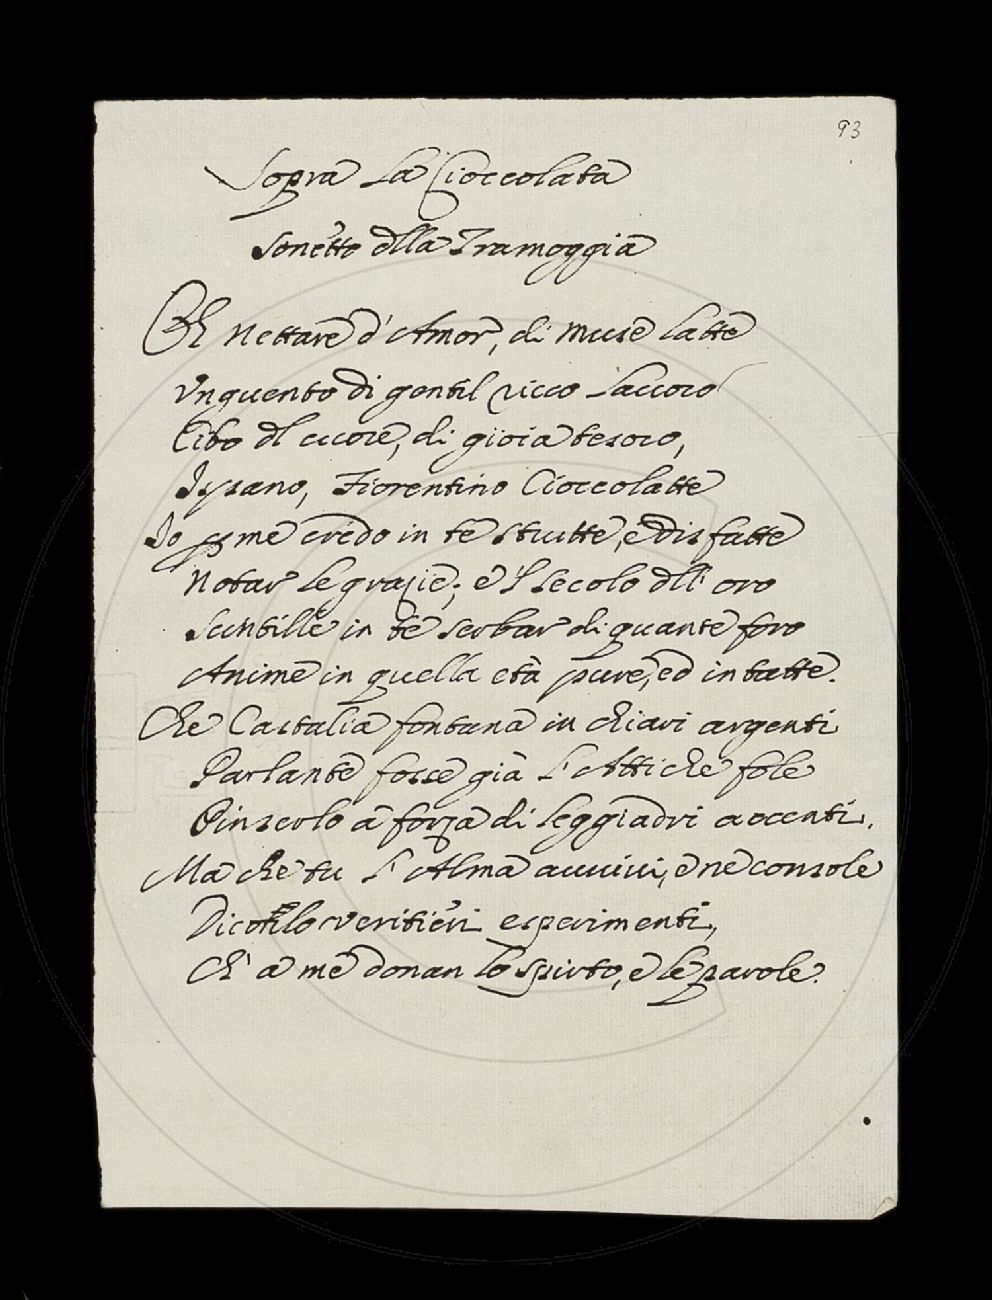 93
Sopra La Cioccolata
Sonetto dlla Tramoggia
Oh Nettare d'Amor, di Muse Latte
Unguento di gentil ricco Laccoro
Cibo dl cuore, di gioia tesoro,
Ispano, Fiorentino Cioccolatte
Io p me credo in te strutte, e disfatte
Notar le grazie; e 'l secolo dll' oro
Scintille in te serbar di quante foro
Anime in quella età pure, ed intatte.
Che Castalia fontana in chiari argenti
Parlante fosse già l'Attiche fole
Pinserlo a forza di leggiadri accenti.
Ma che tu l'Alma auuiui, e ne console
Dicolo veritieri esperimenti,
Ch' a me donan lo spirto, e le parole.